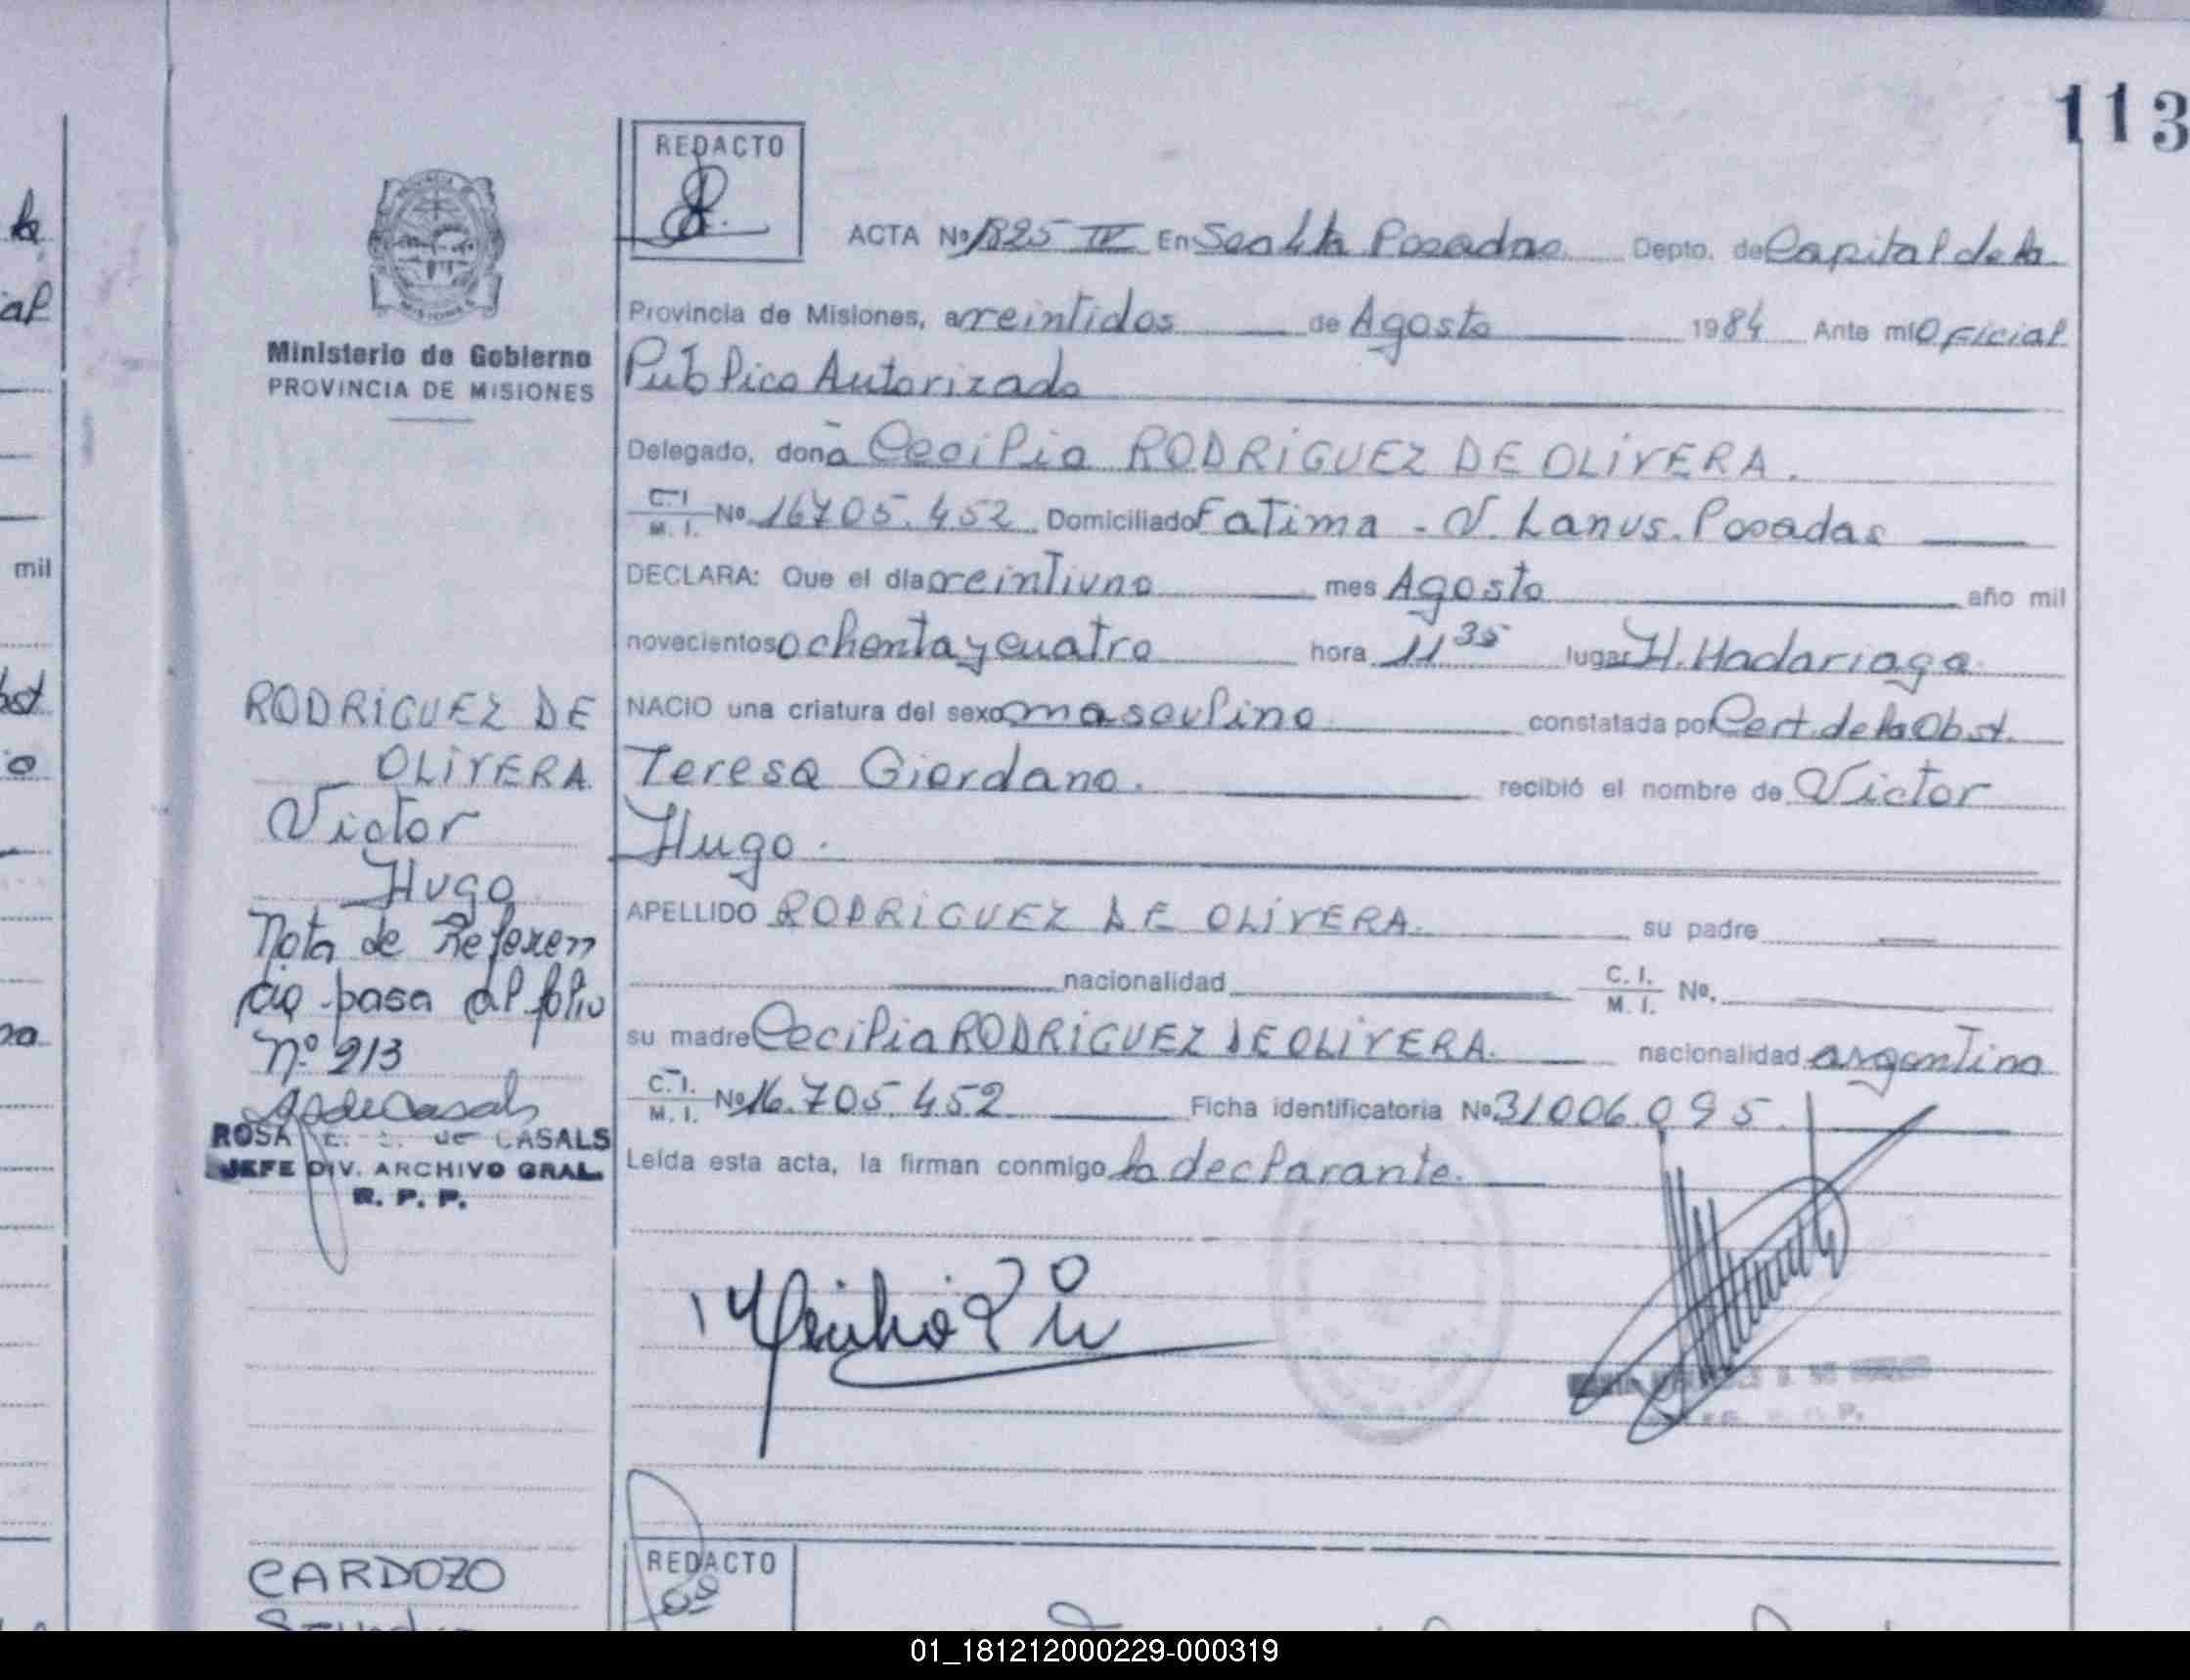 113
REDACTO
ACTA Nº 1825 IV En Sec 4ta Posadas Depto. de Capital de la
Provincia de Misiones, a veintidos de Agosto 1984 Ante mí Oficial
Público Autorizado
Ministerio de Gobierno
PROVINCIA DE MISIONES
Delegado, doña Cecilia RODRIGUEZ DE OLIVERA.
C.I. M.I. Nº 16705.452 Domiciliado Fatima - V. Lanus. Posadas
DECLARA: Que el día veintiuno mes Agosto año mil
novecientos ochenta y cuatro hora 11 35 lugar H. Madariaga
NACIO una criatura del sexo masculino constatada por Cert. de la Obst.
Teresa Giordano. recibió el nombre de Victor
Hugo.
APELLIDO RODRIGUEZ DE OLIVERA. su padre
nacionalidad C.I. M.I. Nº.
su madre Cecilia RODRIGUEZ DE OLIVERA. nacionalidad argentina
C.I. M.I. Nº 16.705.452 Ficha identificatoria Nº 31006.095.
Leída esta acta, la firman conmigo la declarante.
RODRIGUEZ DE
OLIVERA
Victor
Hugo
Nota de Referen
cia pasa al folio
Nº 213
ROSA de CASALS
JEFE DIV. ARCHIVO GRAL.
R. P. P.
CARDOZO
REDACTO
mil
01_181212000229-000319